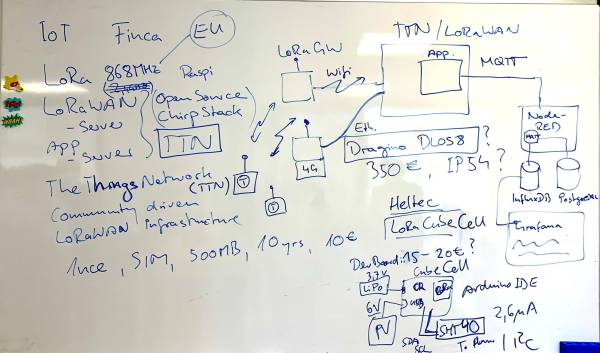 IoT Finca EU
LoRa 868MHz Raspi
LoRaWAN
- Server
App
Server
Open Source
ChirpStack
TTN
The Things Network
(TTN)
Community driven
LoRaWAN infrastructure
1nce, SIM, 500MB, 10yrs, 10€
LoRa GW
Wifi
TTN/LoRaWAN
App.
MQTT
Eth.
4G
T
T
Dragino DLOS8 ?
350€, IP54 ?
Node-
RED
InfluxDB
Grafana
Heltec
LoRa CubeCell
DevBoard: 15-20€ ?
CubeCell
3,7V
LiPo
6V
PV
USB
Arduino IDE
SDA
SCL
SHT40
2,6µA
I²C